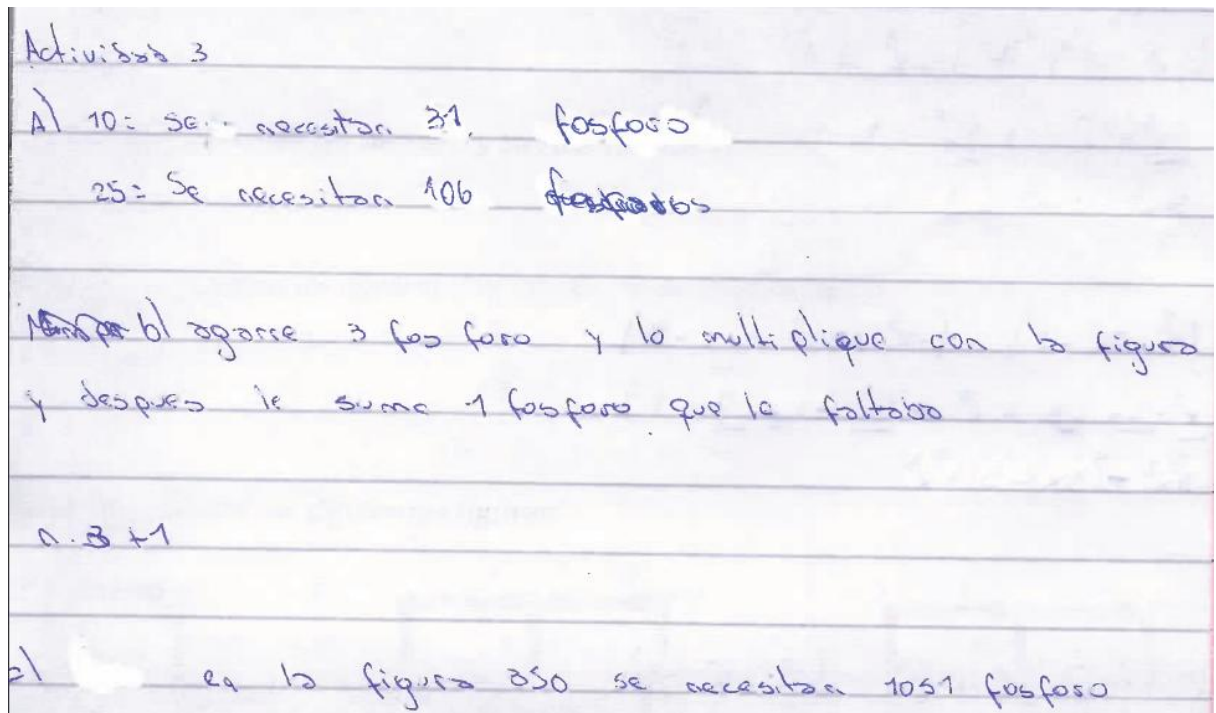 Actividad 3
A) 10: se necesitan 31 fosforo
25: Se necesitan 106
b) agarre 3 fos foro y lo multiplique con la figura
y despues le sume 1 fosforo que le faltaba
n. 3 +1
c) en la figura 350 se necesitan 1051 fosforo